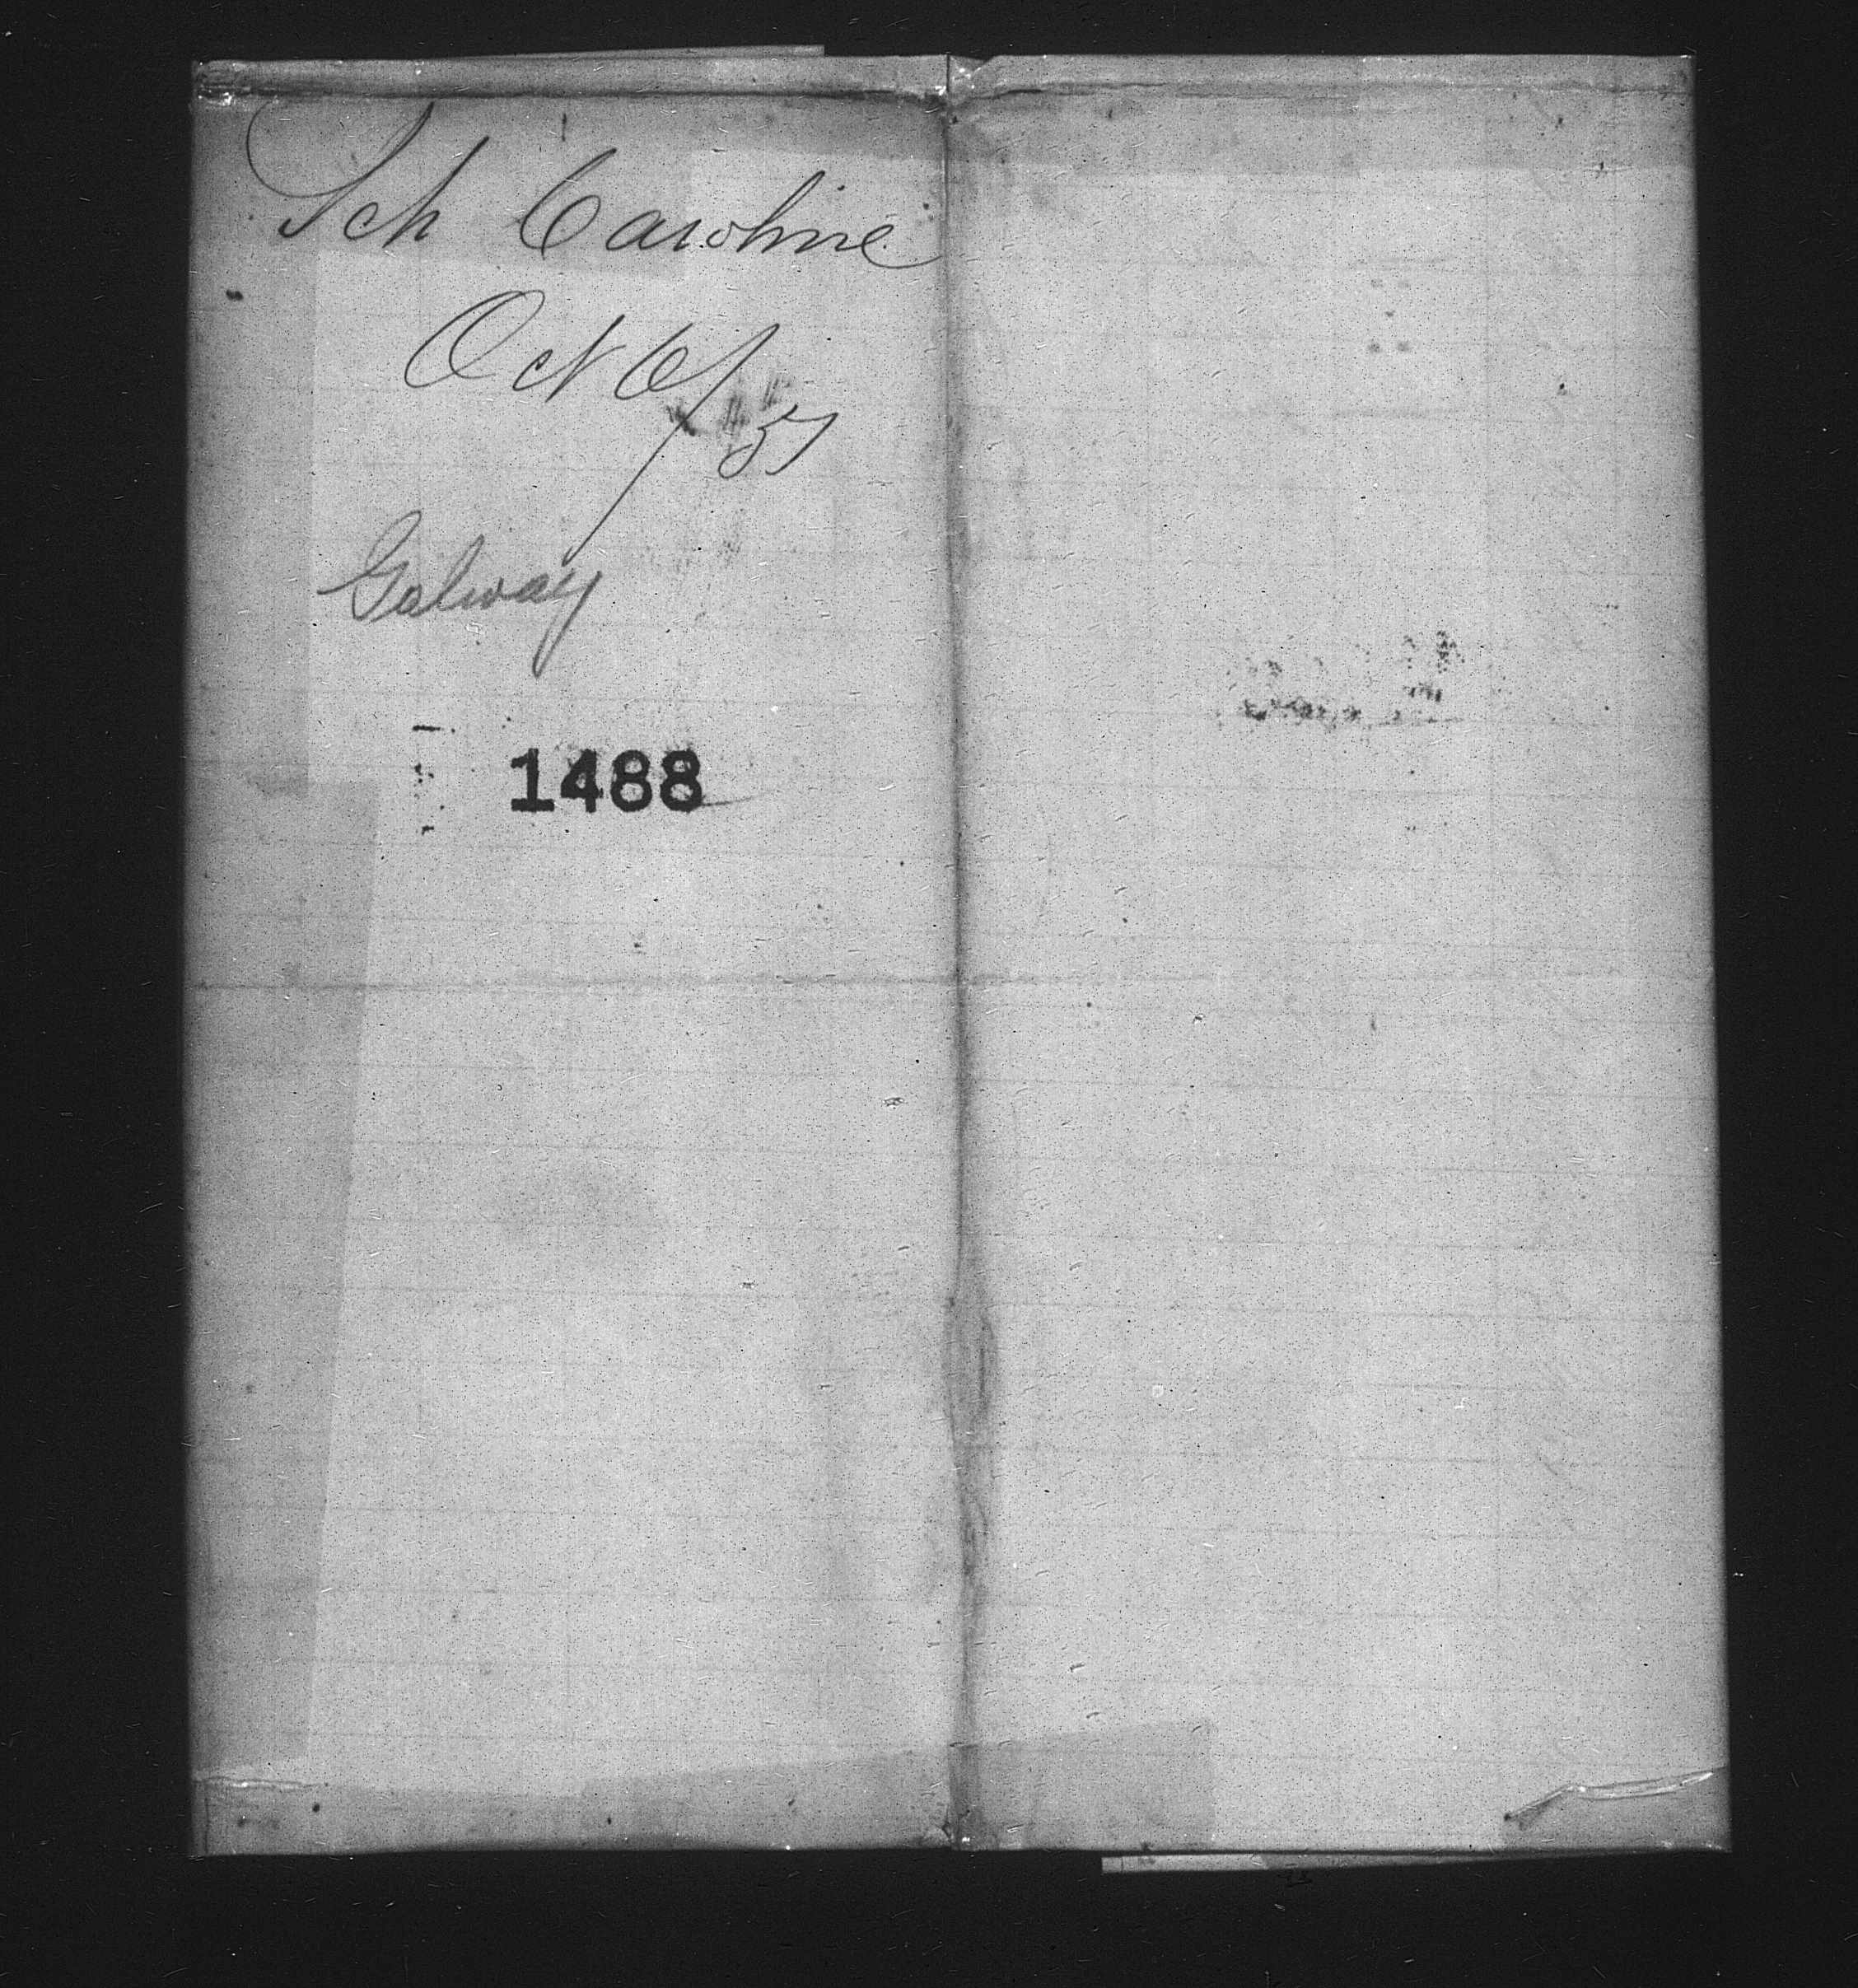 Sch Caroline
Oct 6/51
Galway
1488